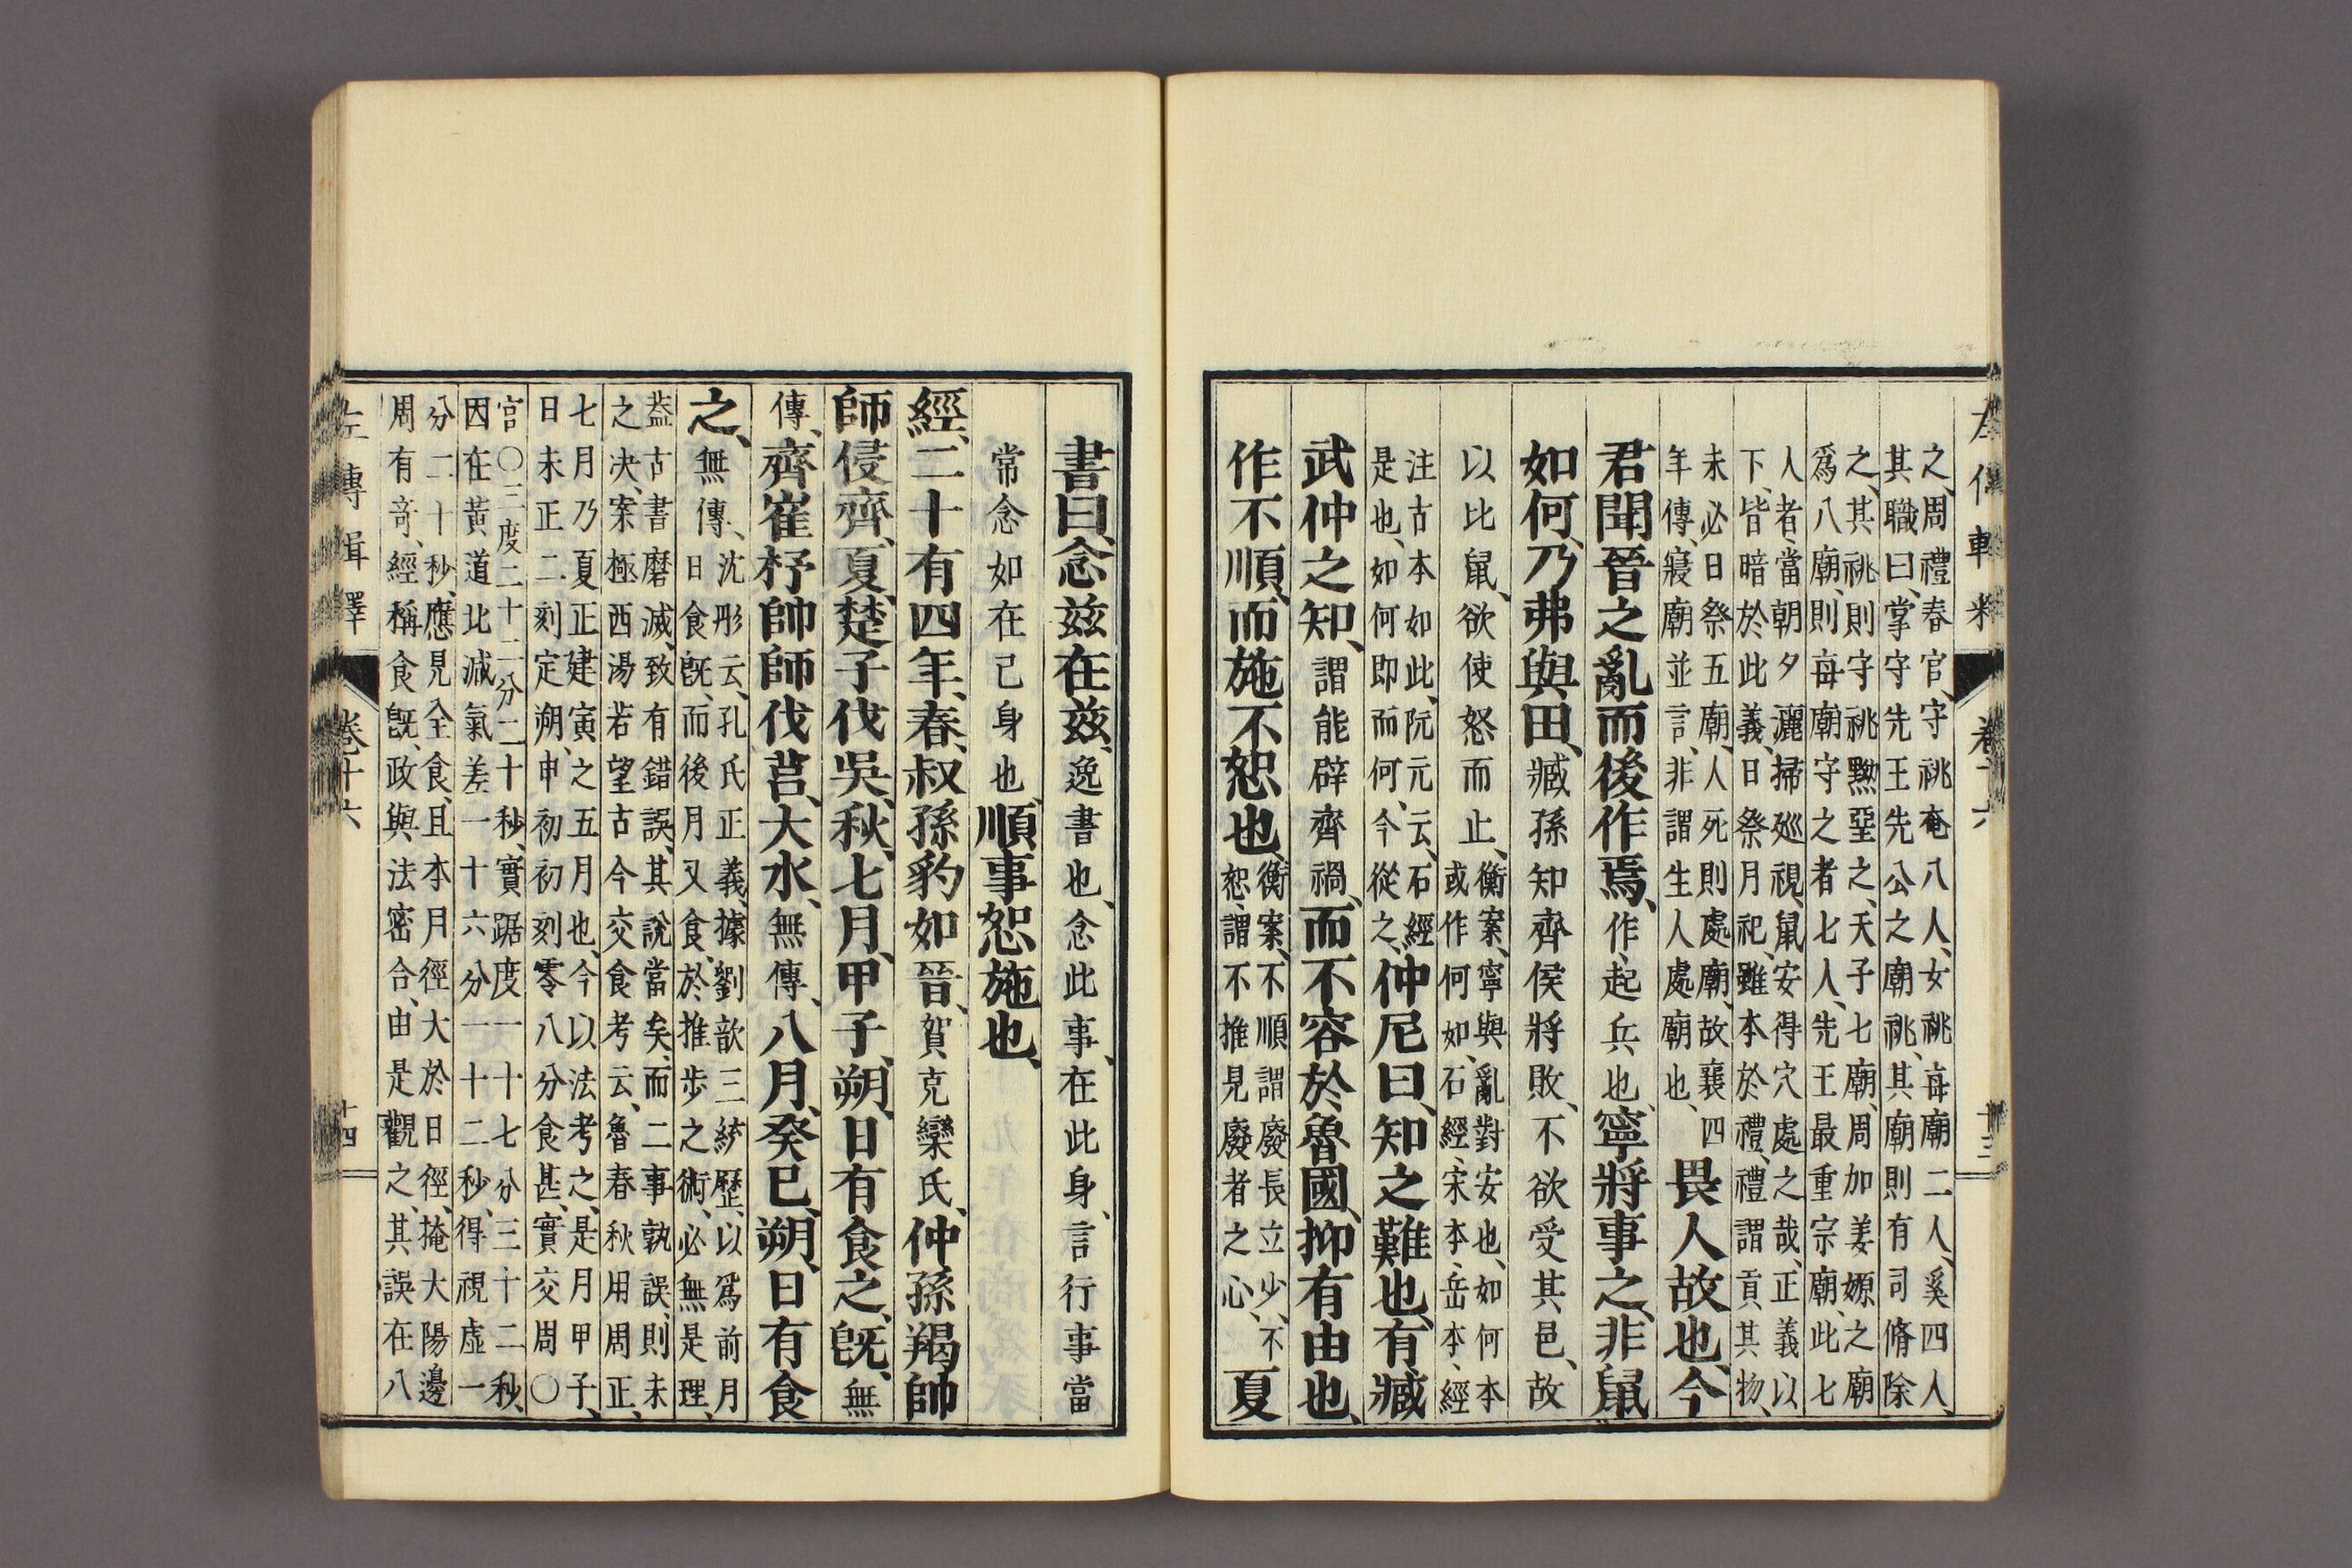 之、周禮春官、守祧奄八人、女祧每廟二人、奚四人、
其職曰、掌守先王先公之廟祧、其廟則有司脩除
之、其祧則守祧黝堊之、天子七廟、周加姜嫄之廟
爲八廟、則每廟守之者七人、先王最重宗廟、此七
人者、當朝夕灑掃廵視、鼠安得穴處之哉、正義以
下、皆暗於此義、日祭月祀、雖本於禮、禮謂貢其物、
未必日祭五廟、人死則處廟、故襄四
年傳、寢廟並言、非謂生人處廟也、
畏人故也、今
君聞晉之亂而後作焉、作、起兵也、寧將事之、非鼠
如何、乃弗與田、臧孫知齊侯將敗、不欲受其邑、故
以比鼠、欲使怒而止、
衡案、寧與亂對安也、如何本
或作何如、石經、宋本、岳本、經
注古本如此、阮元云、石經
是也、如何即而何、今從之、
仲尼曰、知之難也、有臧
武仲之知、謂能辟齊禍、而不容於魯國、抑有由也、
作不順、而施不恕也、
衡案、不順謂廢長立少、不
恕、謂不推見廢者之心、
夏
左傳輯釋 卷十六 十三
書曰、念茲在茲、逸書也、念此事、在此身、言行事當
常念如在己身也、順事恕施也、
經、二十有四年、春、叔孫豹如晉、賀克欒氏、仲孫羯帥
師侵齊、夏、楚子伐吳、秋、七月、甲子、朔、日有食之、旣、無
傳、齊崔杼帥師伐莒、大水、無傳、八月、癸巳、朔、日有食
之、無傳、
沈彤云、孔氏正義、據劉歆三統歷、以爲前月
日食旣、而後月又食、於推步之術、必無是理、
葢古書磨滅、致有錯誤、其說當矣、而二事孰誤、則未
之決、案極西湯若望古今交食考云、魯春秋用周正、
七月乃夏正建寅之五月也、今以法考之、是月甲子、
日未正二刻定朔、申初初刻零八分食甚、實交周〇
宮〇三度二十二分二十秒、實踞度一十七分三十二秒、
因在黃道北減氣差一十六分一十二秒、得視虛一
分二十秒、應見全食、且本月徑大於日徑、掩大陽邊
周有奇、經稱食旣、政與法密合、由是觀之、其誤在八
左傳輯釋 卷十六 十四